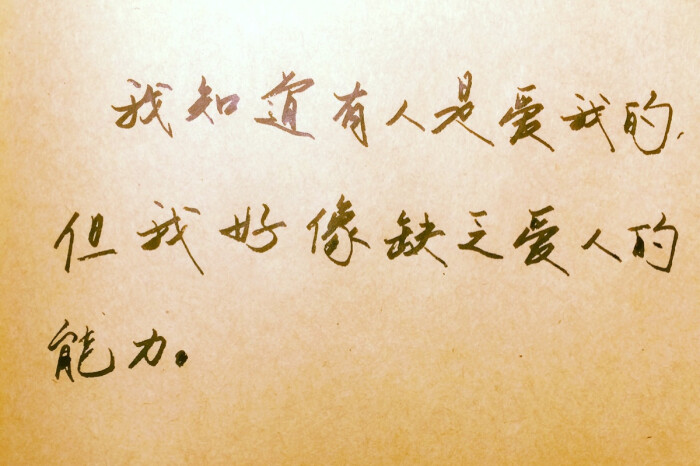 我知道有人是爱我的,
但我好像缺乏爱人的
能力。